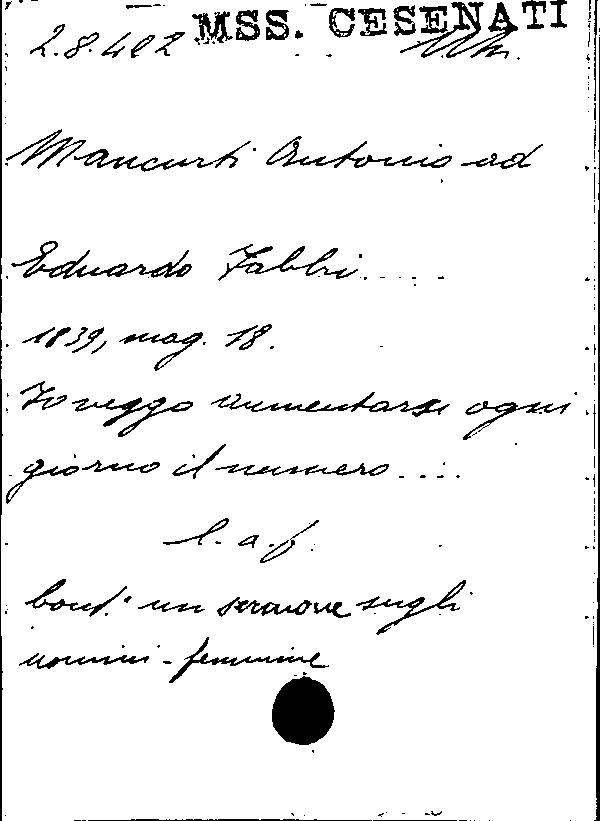 MSS. CESENATI
2.8.402
Mancurti Antonio ad
Eduardo Fabbri....
1839, mag. 18.
Io veggo aumentarsi ogni
giorno il numero....
l. a. f.
cont.: un sermone sugli
uomini-femmine